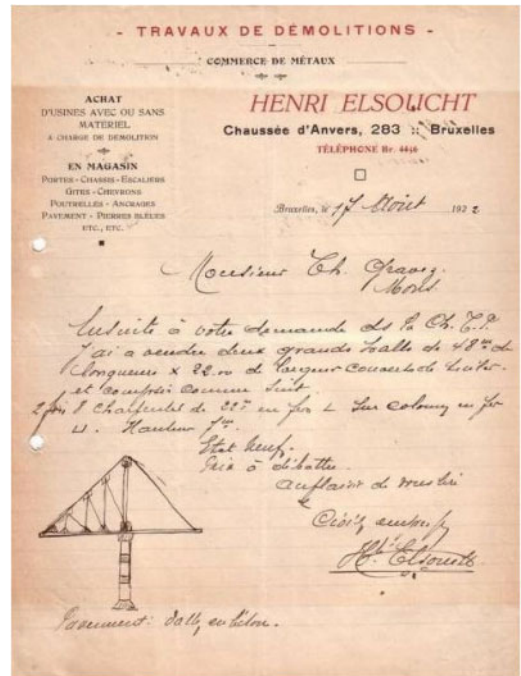 - TRAVAUX DE DÉMOLITIONS -
COMMERCE DE MÉTAUX
ACHAT
D'USINES AVEC OU SANS
MATERIEL
A CHARGE DE DEMOLITION
EN MAGASIN
PORTES - CHASSIS - ESCALIERS
GITES - CHEVRONS
POUTRELLES - ANCRAGES
PAVEMENT - PIERRES BLEUES
ETC., ETC.
HENRI ELSOUCHT
Chaussée d'Anvers, 283 :: Bruxelles
TÉLÉPHONE Br. 4456
Bruxelles, le 17 Août 1922
Monsieur Ch.
Mons.
Ensuite à votre demande ds la Ch. T.P.
J'ai a vendre deux grands halls de 48m de
longueurs x 22.00 de largeur
et compris comme suit
8 charpentes de 22m en fers L sur colonnes en fer
U. Hauteur 7m.
Etat neuf.
Prix à débattre.
Au plaisir de vous lire
Hri Elsoucht
Pavement: dalles en béton.